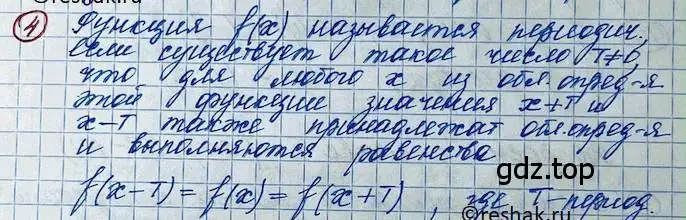 4 Функция f(x) называется периодич.
если существует такое число T≠0,
что для любого x из обл. опред-я
этой функции значения x+T и
x-T также принадлежат обл. опред-я
и выполняются равенства
gdz.top
f(x-T) = f(x) = f(x+T), где T-период